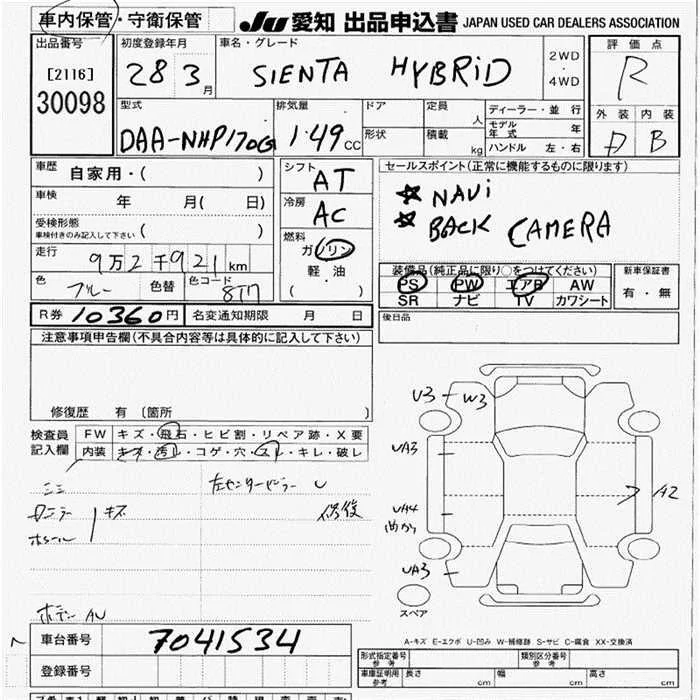 車内保管・守衛保管
JU 愛知 出品申込書 JAPAN USED CAR DEALERS ASSOCIATION
出品番号
[2116]
30098
初度登録年月
28 3月
車名・グレード
SIENTA HYBRID
2WD・4WD
評価点
R
外装 内装
D B
型式
DAA-NHP170G
排気量
1.49cc
ドア
形状
定員 人
積載 kg
ディーラー・並行
モデル年式 年
ハンドル 左・右
車歴 自家用・( )
車検 年 月( 日)
受検形態
車検付きのみ記入して下さい ( )
走行 9万2千921km
色 ブルー 色替 色コード 8T7
シフト AT
冷房 AC
燃料
ガソリン
軽・油
( )
セールスポイント(正常に機能するものに限ります)
☆ NAVi
☆ BACK CAMERA
装備品(純正品に限り○をつけてください)
PS PW エアB AW
SR ナビ TV カワシート
新車保証書
有・無
R券 10360円 名変通知期限 月 日
後日品
注意事項申告欄(不具合内容等は具体的に記入して下さい)
修復歴 有 (箇所 )
検査員記入欄
FW キズ・飛石・ヒビ割・リペア跡・X要
内装 キズ・汚れ・コゲ・穴・スレ・キレ・破レ
左センターピラー U
修復
キズ
ボデー AU
U3 W3
UA3
UA4
曲がり
UA3
A2
スペア
A-キズ E-エクボ U-凹み W-補修跡 S-サビ C-腐食 XX-交換済
車台番号 7041534
登録番号
形式指定番号 参考
類別区分番号 参考
車庫証明用 参考 長さ cm 幅 cm 高さ cm